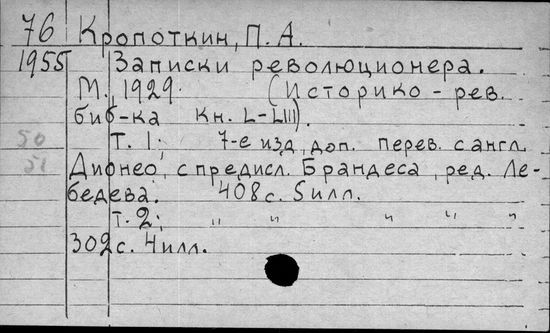 76 Кропоткин, П. А.
1955 Записки революционера.
М. 1929. (Историко-рев.
биб-ка Кн. L-LIII).
50 Т. 1; 7-е изд, доп. перев. с англ
51 Дионео, с предисл. Брандеса, ред. Ле-
бедева. 408 с. 5 илл.
т. 2; " " " " "
302 с. 4 илл.